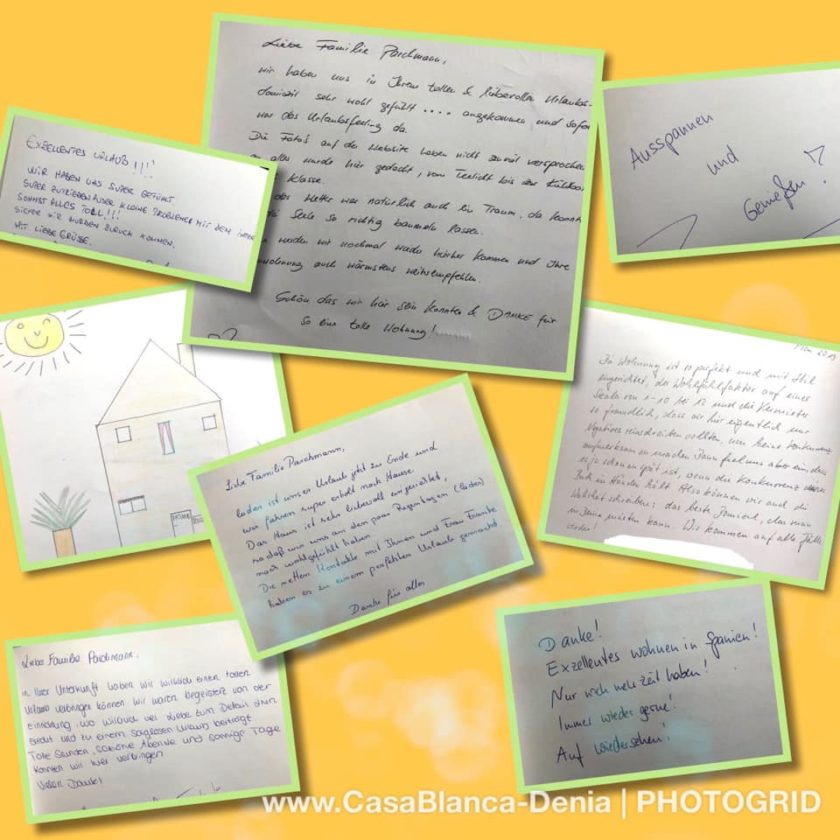 Liebe Familie Parchmann,
wir haben uns in Ihrem tollen & liebevollen Urlaubs-
domizil sehr wohl gefühlt .... angekommen und sofort
war das Urlaubsfeeling da.
Die Fotos auf der Website haben nicht zuviel versprochen
an alles wurde hier gedacht, vom Teelicht bis zur Kühlbox
klasse.
das Wetter war natürlich auch ein Traum, da konnte
Seele so richtig baumeln lassen.
werden wir nochmal wieder hierher kommen und Ihre
wohnung auch wärmstens weiterempfehlen.
Schön das wir hier sein konnten & DANKE für
so eine tolle Wohnung!
Ausspannen
und
Genießen!
EXZELLENTES URLAUB!!!
WIR HABEN UNS SUPER GEFÜHLT
SUPER ZUFRIEDEN AUßER KLEINE PROBLEMER MIT DEM
SONNST ALLES TOLL!!!
SICHER WIR WÜRDEN ZURÜCK KOMMEN.
MIT LIEBE GRÜßE.
2019
Die Wohnung ist so perfekt und mit Stil
eingerichtet, der Wohlfühlfaktor auf einer
Skala von 1-10 ist 12 und die Vermieter
so freundlich, dass wir hier eigentlich nur
Negatives reinschreiben wollten, um keine Konkurrenz
aufmerksam zu machen. Dann fiel uns aber ein, dass
es ja schon zu spät ist, wenn die Konkurrenz dieses
Buch in Händen hält. Also können wir auch die
Wahrheit schreiben: das beste Domizil, das man
in Denia mieten kann. Wir kommen auf alle Fälle
wieder!
Liebe Familie Parchmann,
leider ist unser Urlaub geht zu Ende und
wir fahren super erholt nach Hause.
Das Haus ist sehr liebevoll eingerichtet,
so daß wir uns an den paar Regentagen (leider)
noch wohlgefühlt haben.
Die netten Kontakte mit Ihnen und Frau Franke
haben es zu einem perfekten Urlaub gemacht
Danke für alles
Liebe Familie Parchmann,
in Ihrer Unterkunft haben wir wirklich einen tollen
Urlaub verbringen können. Wir waren begeistert von der
Einrichtung, wo wirklich viel Liebe zum Detail drin
steckt und zu einem sorglosen Urlaub beiträgt.
Tolle Stunden, schöne Abende und sonnige Tage
konnten wir hier verbringen.
Vielen Dank!
Danke!
Exzellentes wohnen in Spanien!
Nur noch mehr Zeit haben!
Immer wieder gerne!
Auf wiedersehen!
www.CasaBlanca-Denia | PHOTOGRID